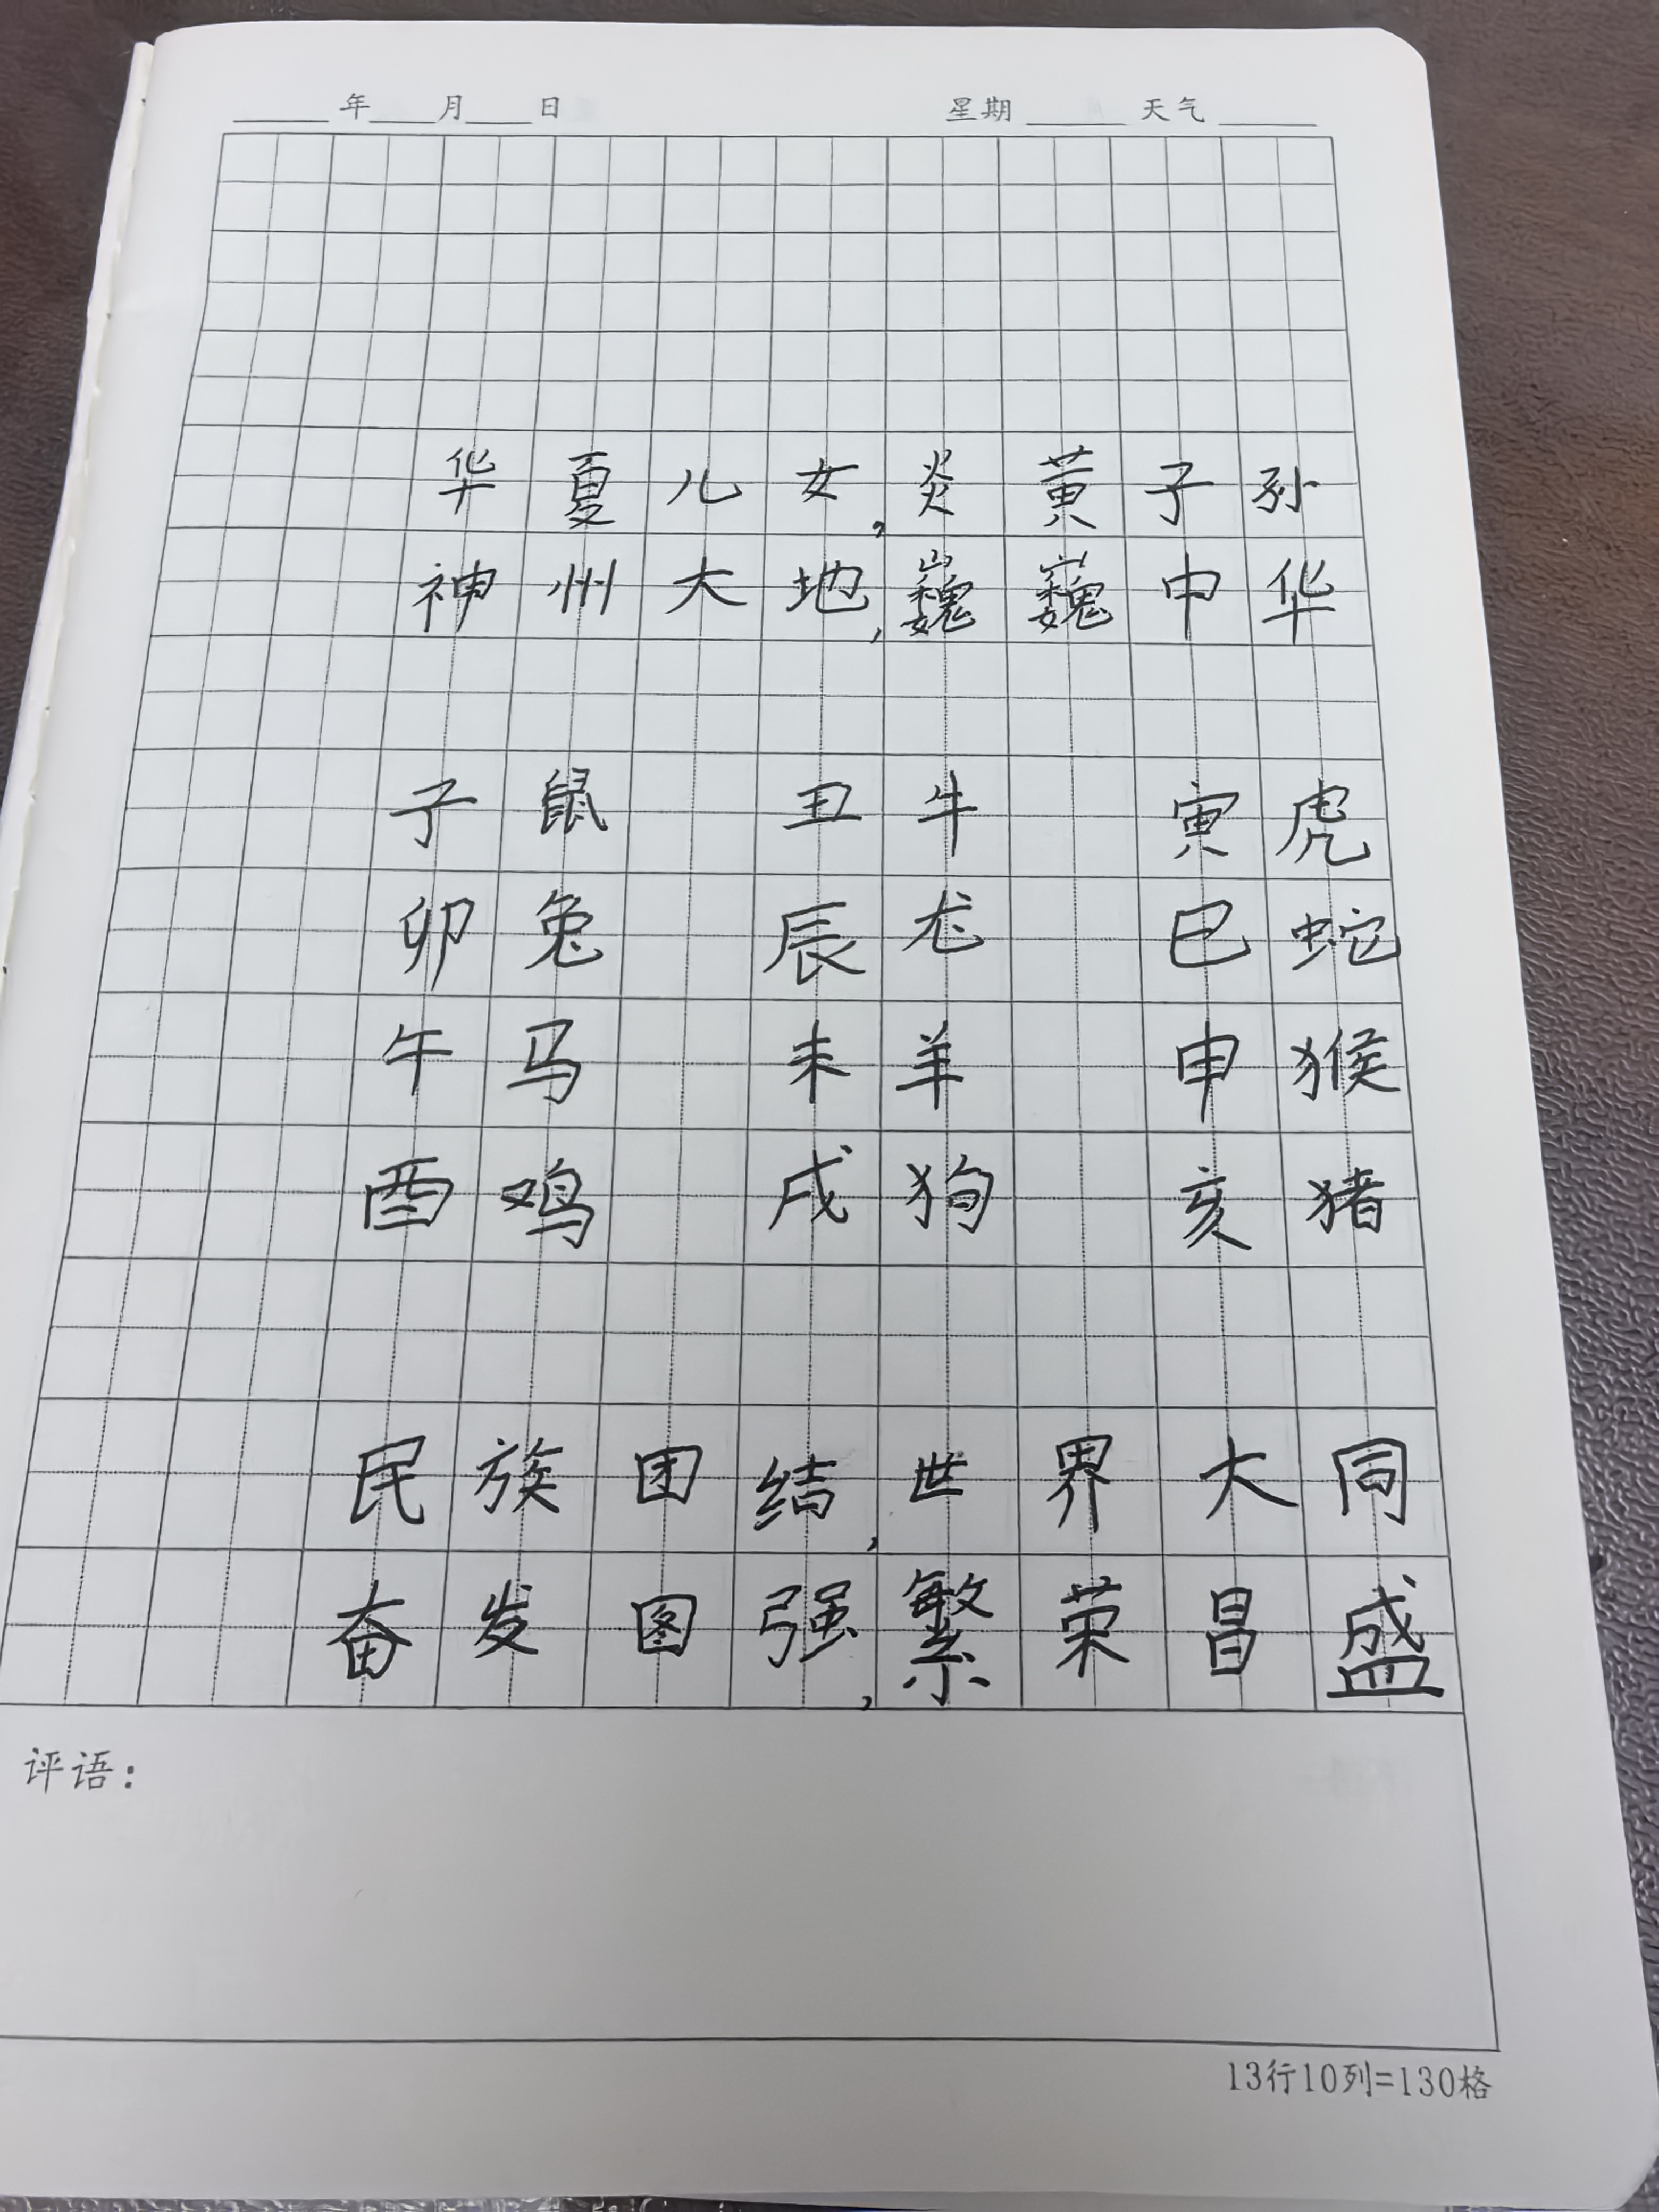 年 月 日 星期 天气
华夏儿女,炎黄子孙
神州大地,巍巍中华
子鼠 丑牛 寅虎
卯兔 辰龙 巳蛇
午马 未羊 申猴
酉鸡 戌狗 亥猪
民族团结,世界大同
奋发图强,繁荣昌盛
评语:
13行10列=130格